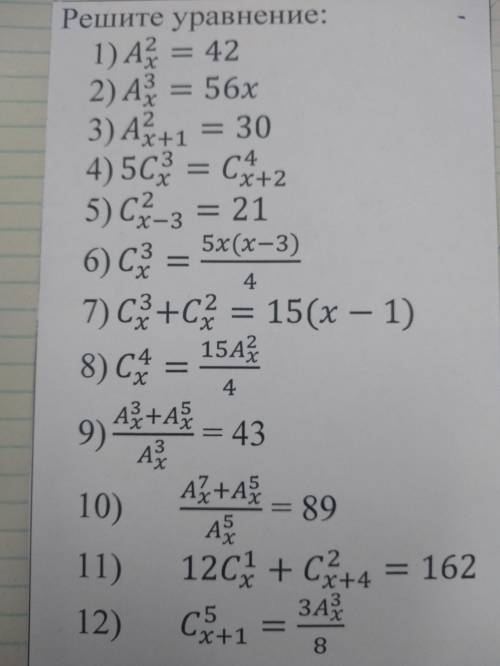 Решите уравнение:
1) A_x^2 = 42
2) A_x^3 = 56x
3) A_{x+1}^2 = 30
4) 5C_x^3 = C_{x+2}^4
5) C_{x-3}^2 = 21
6) C_x^3 = \frac{5x(x-3)}{4}
7) C_x^3+C_x^2 = 15(x − 1)
8) C_x^4 = \frac{15A_x^2}{4}
9) \frac{A_x^3+A_x^5}{A_x^3} = 43
10) \frac{A_x^7+A_x^5}{A_x^5} = 89
11) 12C_x^1 + C_{x+4}^2 = 162
12) C_{x+1}^5 = \frac{3A_x^3}{8}